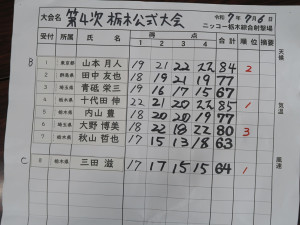 大会名 第4次 栃木公式大会 令和 7年 7月 6日
ニッコー栃木綜合射撃場
受付 所属 氏名 得点 合計 順位 摘要
1 2 3 4
B
1 東京都 山本 月人 19 21 22 22 84 2
2 群馬県 田中 友也 18 19 21 19 77
3 埼玉県 青砥 栄三 19 16 17 15 67
4 栃木県 十代田 伸 22 21 20 22 85 1
5 栃木県 内山 豊 18 20 20 19 77
6 埼玉県 大野 博美 22 18 22 80 3
7 栃木県 秋山 哲也 17 15 13 18 63
C
8 栃木県 三田 滋 17 17 15 15 64 1
天候
気温
風速